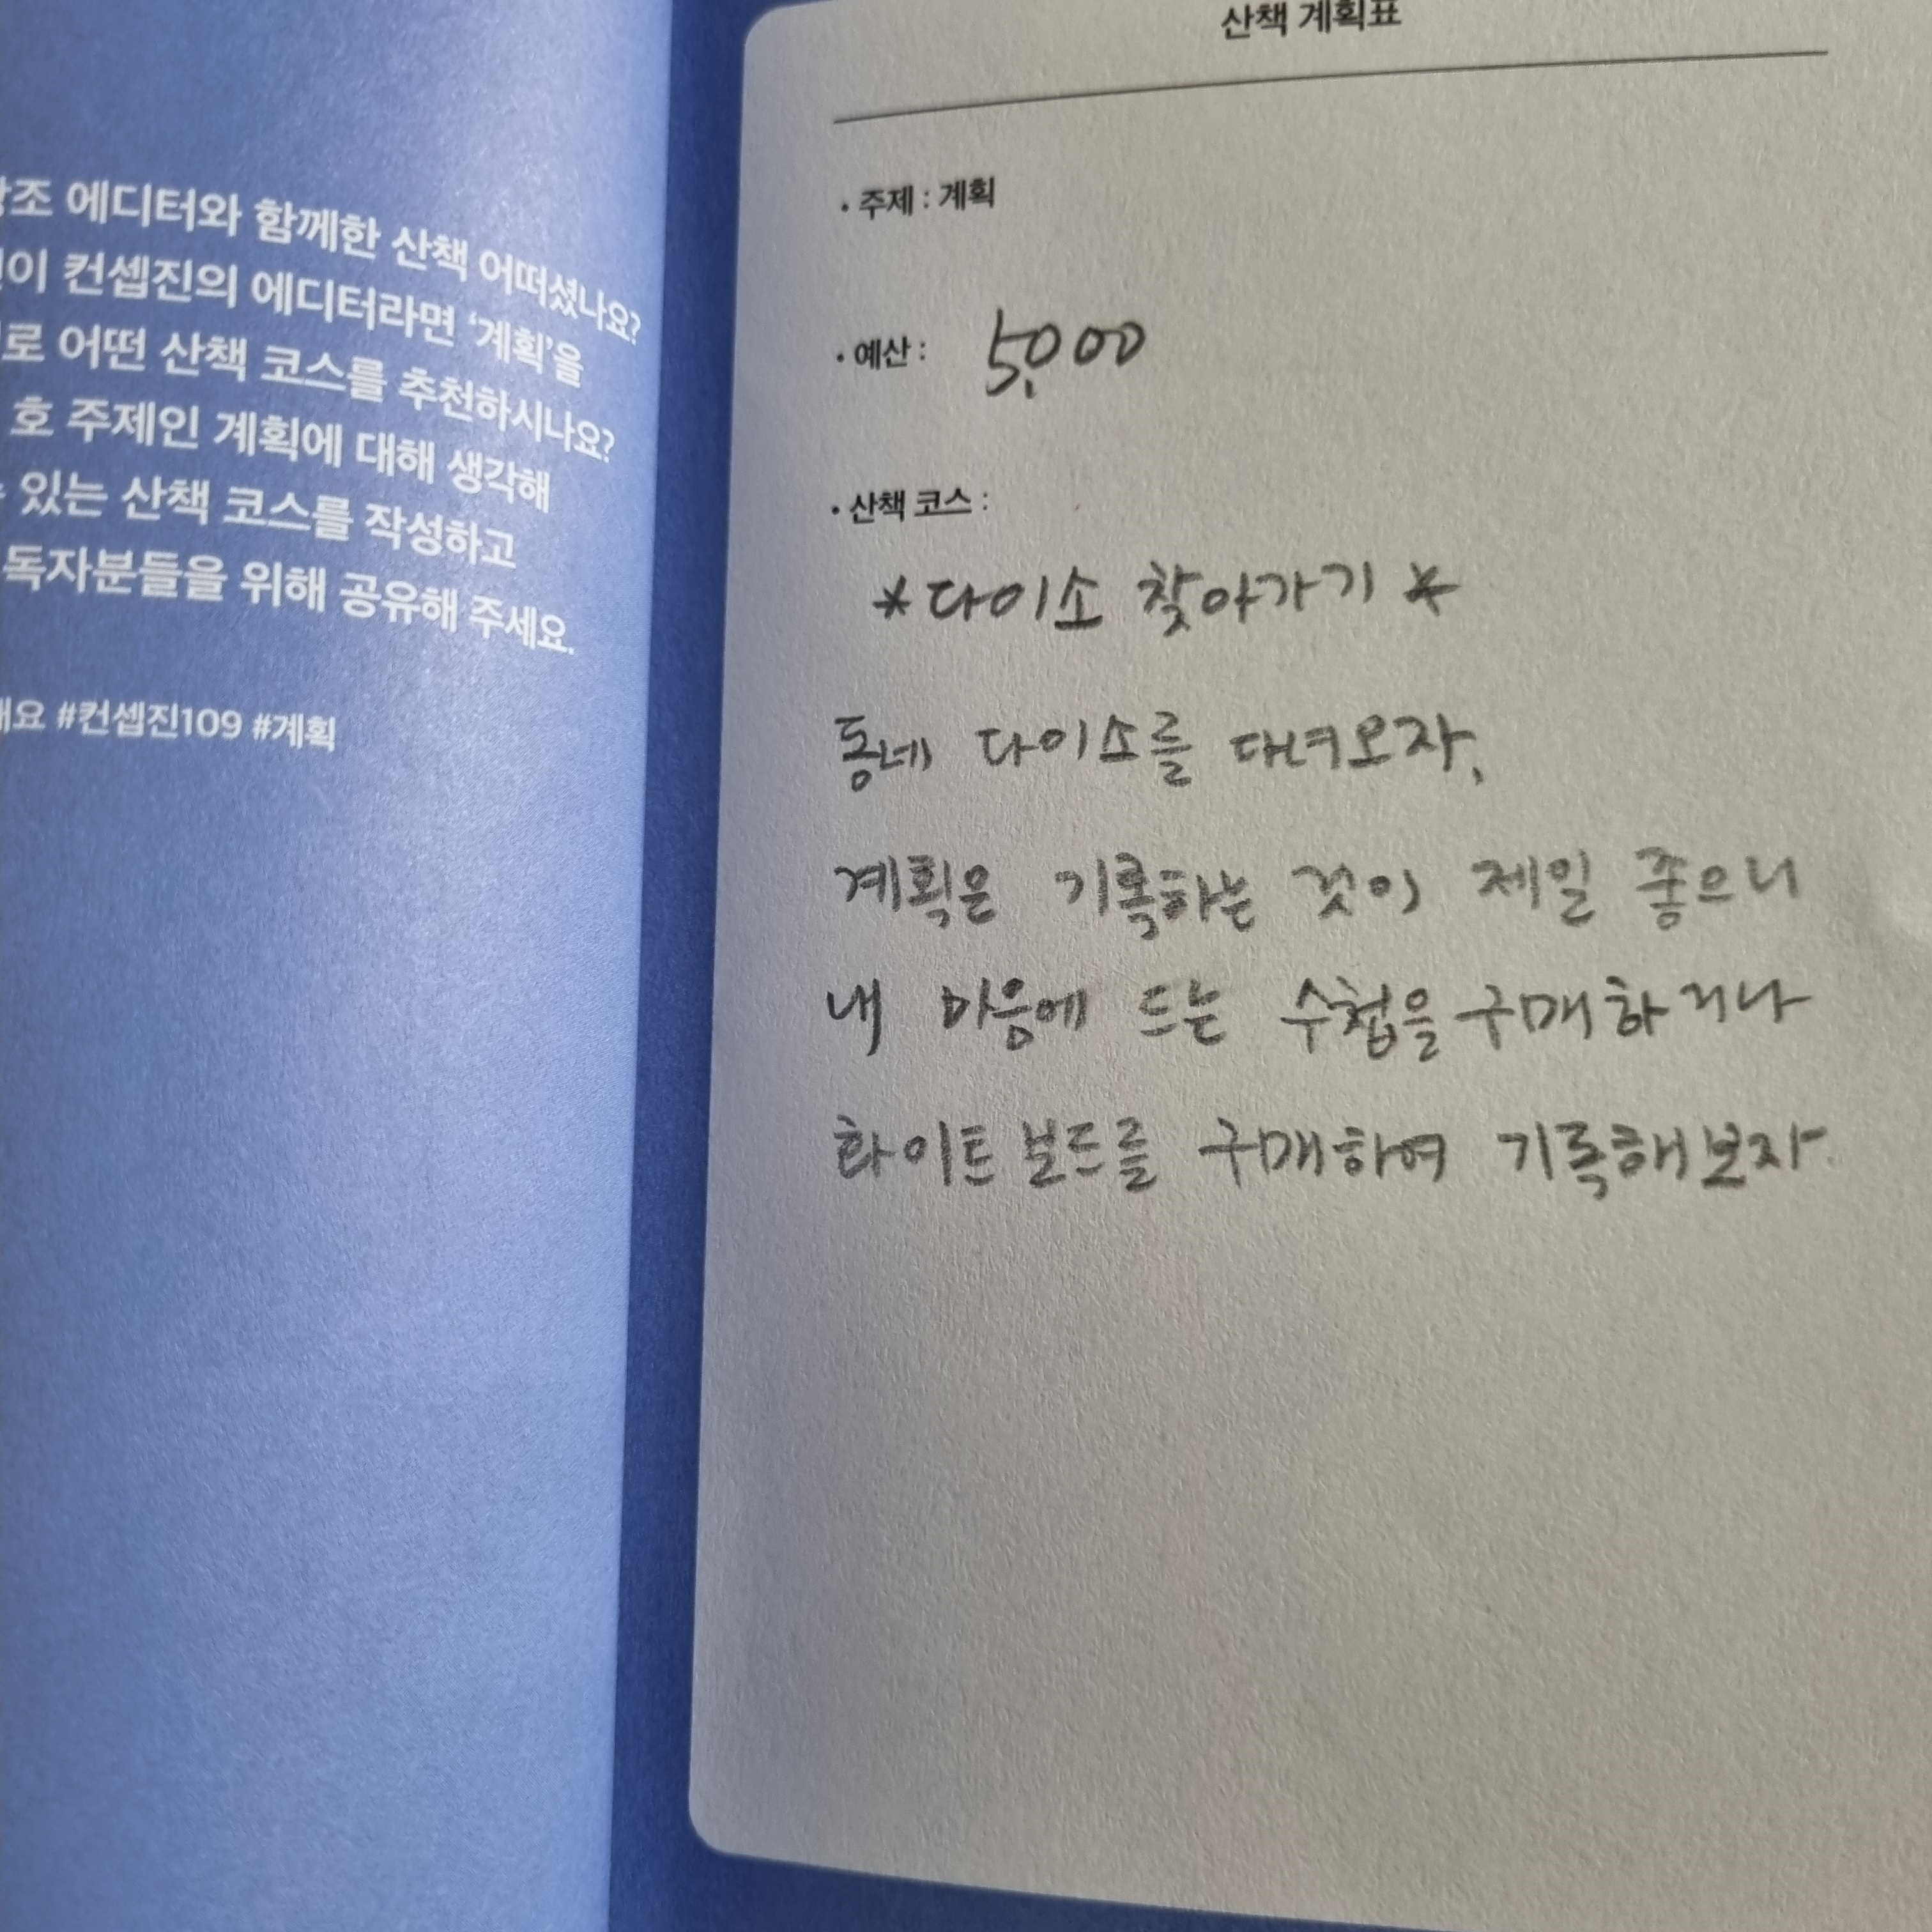 에디터와 함께한 산책 어떠셨나요?
컨셉진의 에디터라면 '계획'을
로 어떤 산책 코스를 추천하시나요?
호 주제인 계획에 대해 생각해
있는 산책 코스를 작성하고
독자분들을 위해 공유해 주세요.
#컨셉진109 #계획
산책 계획표
• 주제 : 계획
• 예산 : 5,000
• 산책 코스 :
*다이소 찾아가기*
동네 다이소를 다녀오자.
계획은 기록하는 것이 제일 좋으니
내 마음에 드는 수첩을 구매하거나
화이트 보드를 구매하여 기록해보자.